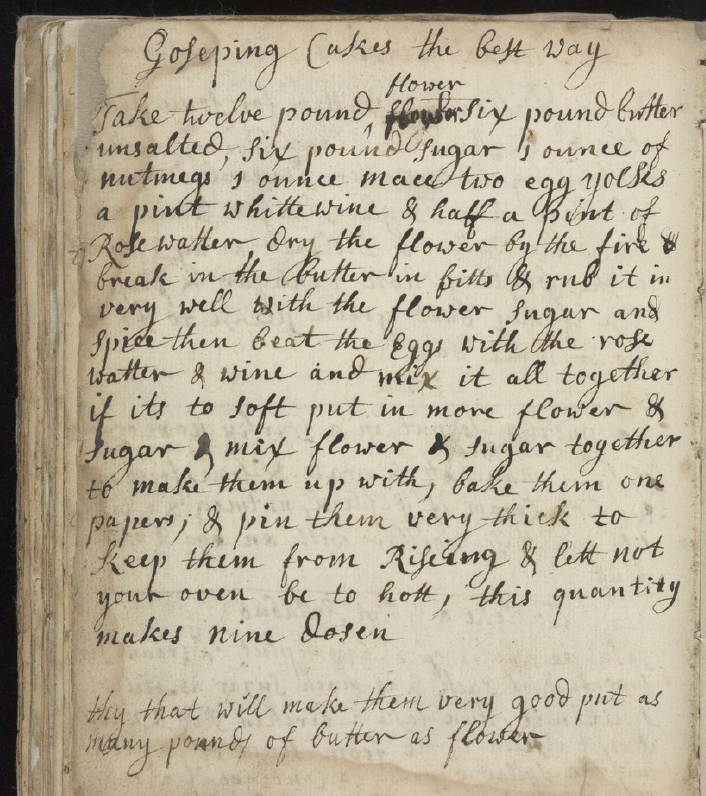 Goseping Cakes the best way
flower
Take twelve pound, flower six pound butter
unsalted, six pound sugar 1 ounce of
nutmegs 1 ounce mace two egg yolks
a pint whitte wine & half a pint of
Rose watter dry the flower by the fire &
break in the butter in bitts & rub it in
very well with the flower sugar and
spice then beat the Eggs with the rose
watter & wine and mix it all together
if its to soft put in more flower &
sugar & mix flower & sugar together
to make them up with, bake them one
papers, & pin them very thick to
keep them from Riseing & lett not
your oven be to hott, this quantity
makes nine dosen
thy that will make them very good put as
many pounds of butter as flower